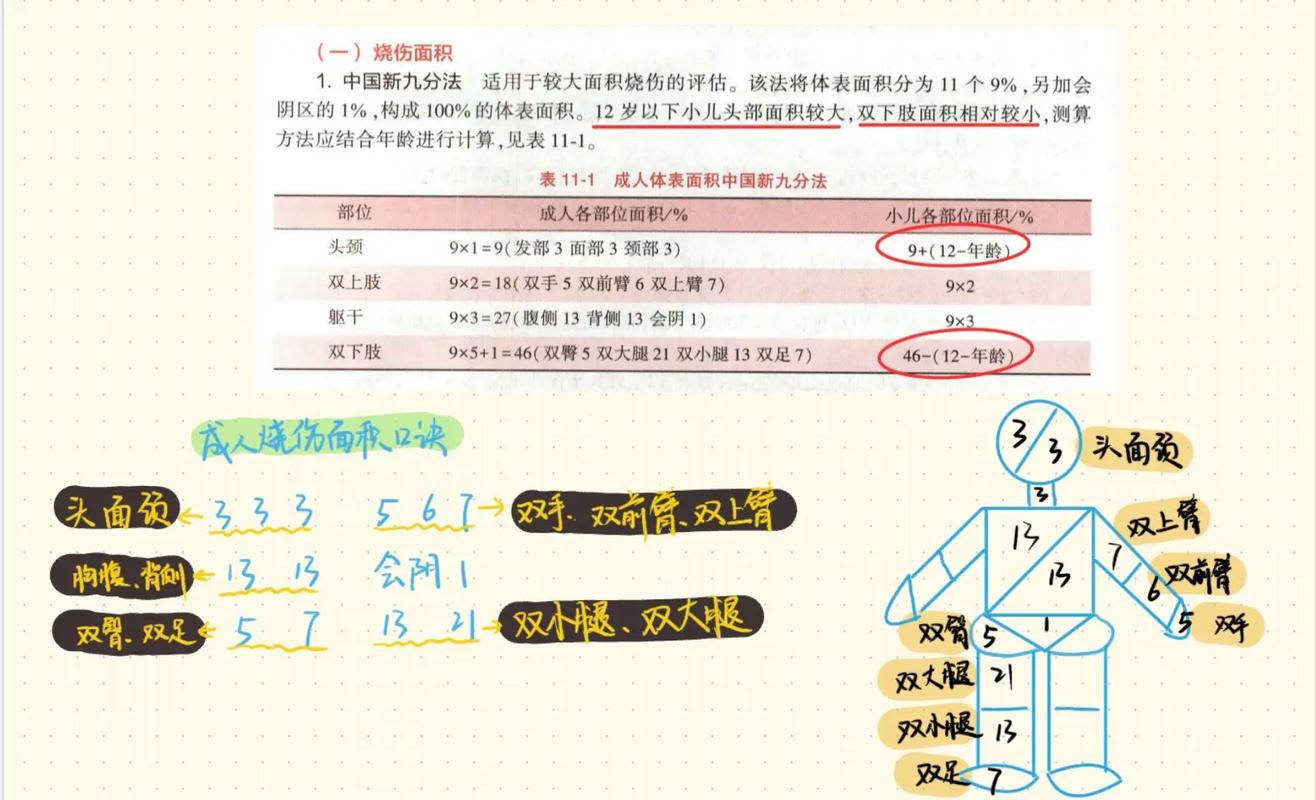 （一）烧伤面积
1. 中国新九分法 适用于较大面积烧伤的评估。该法将体表面积分为 11 个 9%，另加会
阴区的 1%，构成 100%的体表面积。12 岁以下小儿头部面积较大，双下肢面积相对较小，测算
方法应结合年龄进行计算，见表 11-1。
表 11-1 成人体表面积中国新九分法
部位 成人各部位面积/% 小儿各部位面积/%
头颈 9×1=9(发部 3 面部 3 颈部 3) 9+(12-年龄)
双上肢 9×2=18(双手 5 双前臂 6 双上臂 7) 9×2
躯干 9×3=27(腹侧 13 背侧 13 会阴 1) 9×3
双下肢 9×5+1=46(双臀 5 双大腿 21 双小腿 13 双足 7) 46-(12-年龄)
成人烧伤面积口诀
头面颈 ← 3 3 3 5 6 7 → 双手、双前臂、双上臂
胸腹、背侧 ← 13 13 会阴 1
双臀、双足 ← 5 7 13 21 → 双小腿、双大腿
3 3 头面颈
3
13 13
7 双上臂
6 双前臂
5 双手
双臀 5 1
双大腿 21
双小腿 13
双足 7